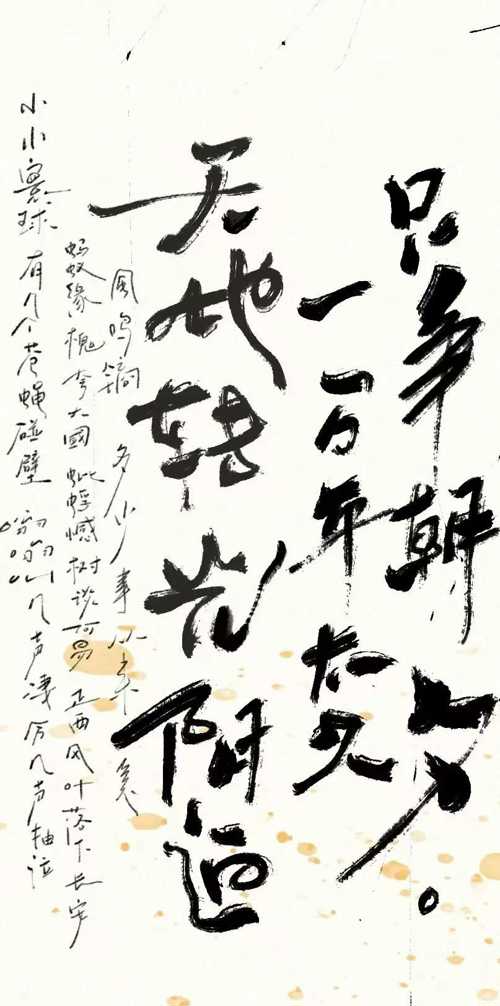 小小寰球 有几个苍蝇碰壁 嗡嗡叫几声凄厉几声抽泣
蚂蚁缘槐夸大國 蚍蜉憾树谈何易 正西风叶落下长安
鸣镝 多少事从来急
天地转光阴迫
一万年太久
只争朝夕。